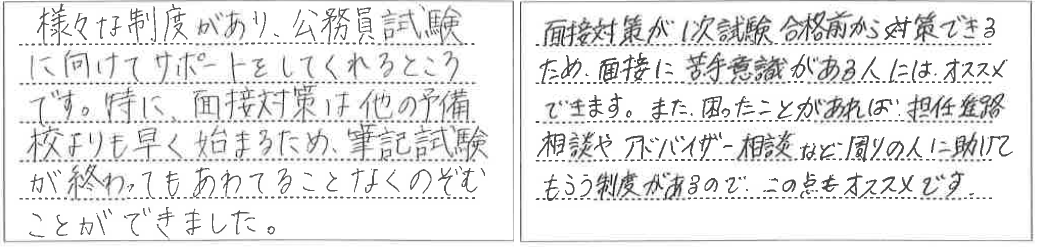 様々な制度があり、公務員試験
に向けてサポートをしてくれるところ
です。特に、面接対策は他の予備
校よりも早く始まるため、筆記試験
が終わってもあわてることなくのぞむ
ことができました。
面接対策が1次試験合格前から対策できる
ため、面接に苦手意識がある人には、オススメ
できます。また、困ったことがあれば、担任進路
相談やアドバイザー相談など周りの人に助けて
もらう制度があるので、この点もオススメです。